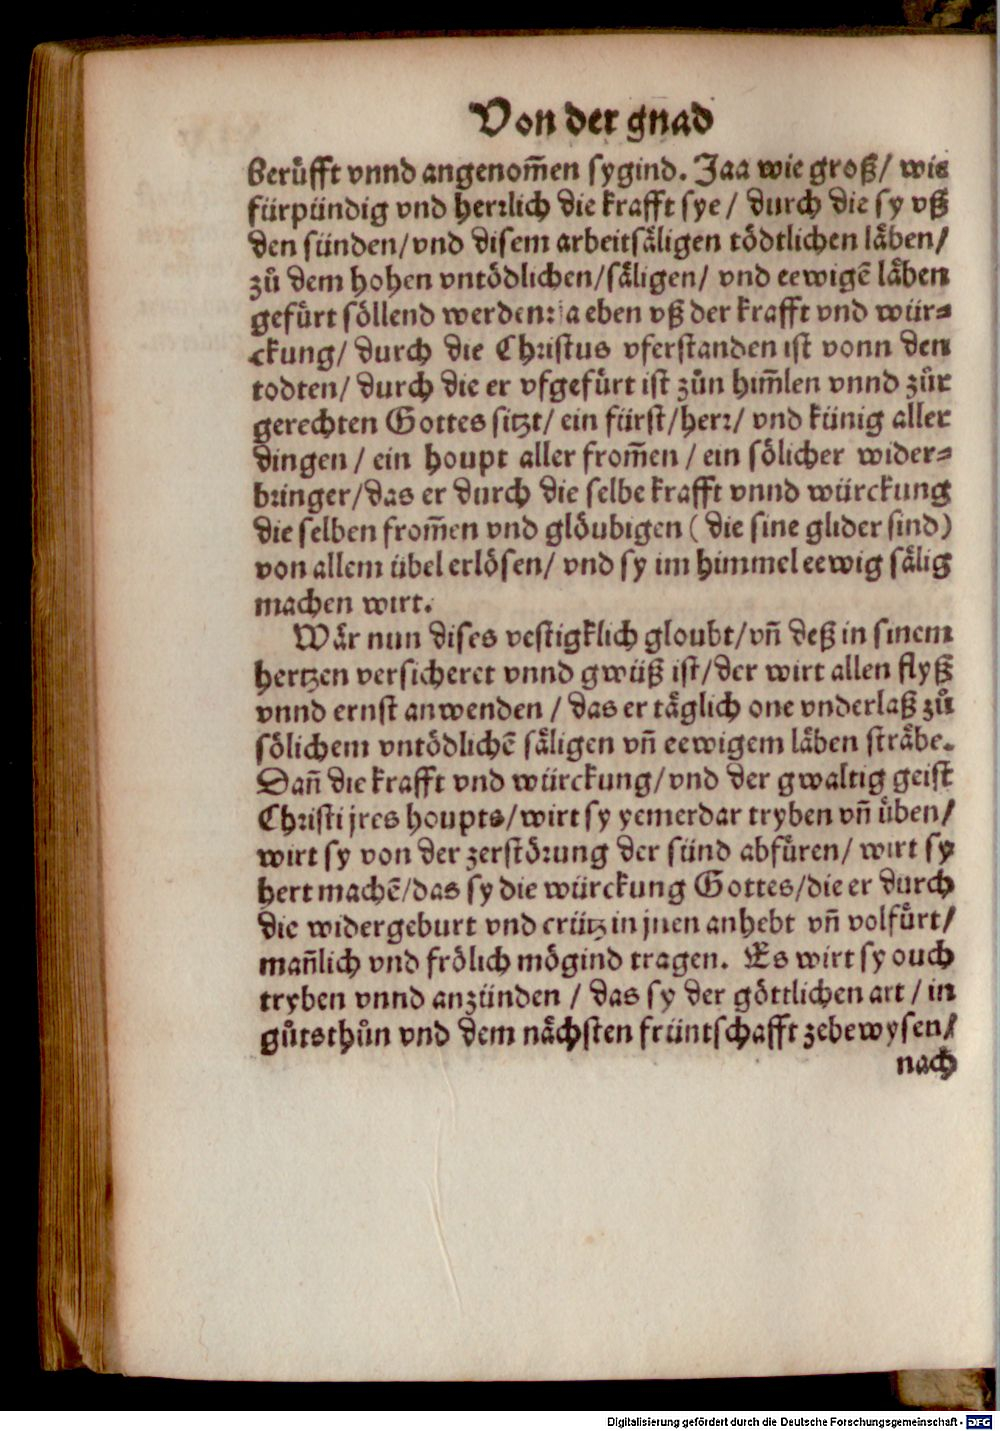 Von der gnad
berůfft vnnd angenom̃en sygind. Jaa wie groß/ wie
fürpündig vnd herrlich die krafft sye/ durch die sy vß
den sünden/vnd disem arbeitsäligen tödtlichen läben/
zů dem hohen vntödlichen/säligen/ vnd eewigẽ läben
gefürt söllend werden: ja eben vß der krafft vnd wür-
ckung/ durch die Christus vferstanden ist vonn den
todten/ durch die er vfgefürt ist zůn him̃len vnnd zůr
gerechten Gottes sitzt/ ein fürst/herr/ vnd künig aller
dingen/ ein houpt aller from̃en/ ein sölicher wider-
bringer/das er durch die selbe krafft vnnd würckung
die selben from̃en vnd glöubigen (die sine glider sind)
von allem übel erlösen/ vnd sy im himmel eewig sälig
machen wirt.
Wär nun dises vestigklich gloubt/vñ deß in sinem
hertzen versicheret vnnd gwüß ist/der wirt allen flyß
vnnd ernst anwenden/ das er täglich one vnderlaß zů
sölichem vntödlichẽ säligen vñ eewigem läben sträbe.
Dañ die krafft vnd würckung/vnd der gwaltig geist
Christi jres houpts/wirt sy yemerdar tryben vñ üben/
wirt sy von der zerstörung der sünd abfüren/ wirt sy
hert machẽ/das sy die würckung Gottes/die er durch
die widergeburt vnd crütz in jnen anhebt vñ volfürt/
mañlich vnd frölich mögind tragen. Es wirt sy ouch
tryben vnnd anzünden/ das sy der göttlichen art/ in
gůtsthůn vnd dem nächsten früntschafft zebewysen/
nach
Digitalisierung gefördert durch die Deutsche Forschungsgemeinschaft - DFG